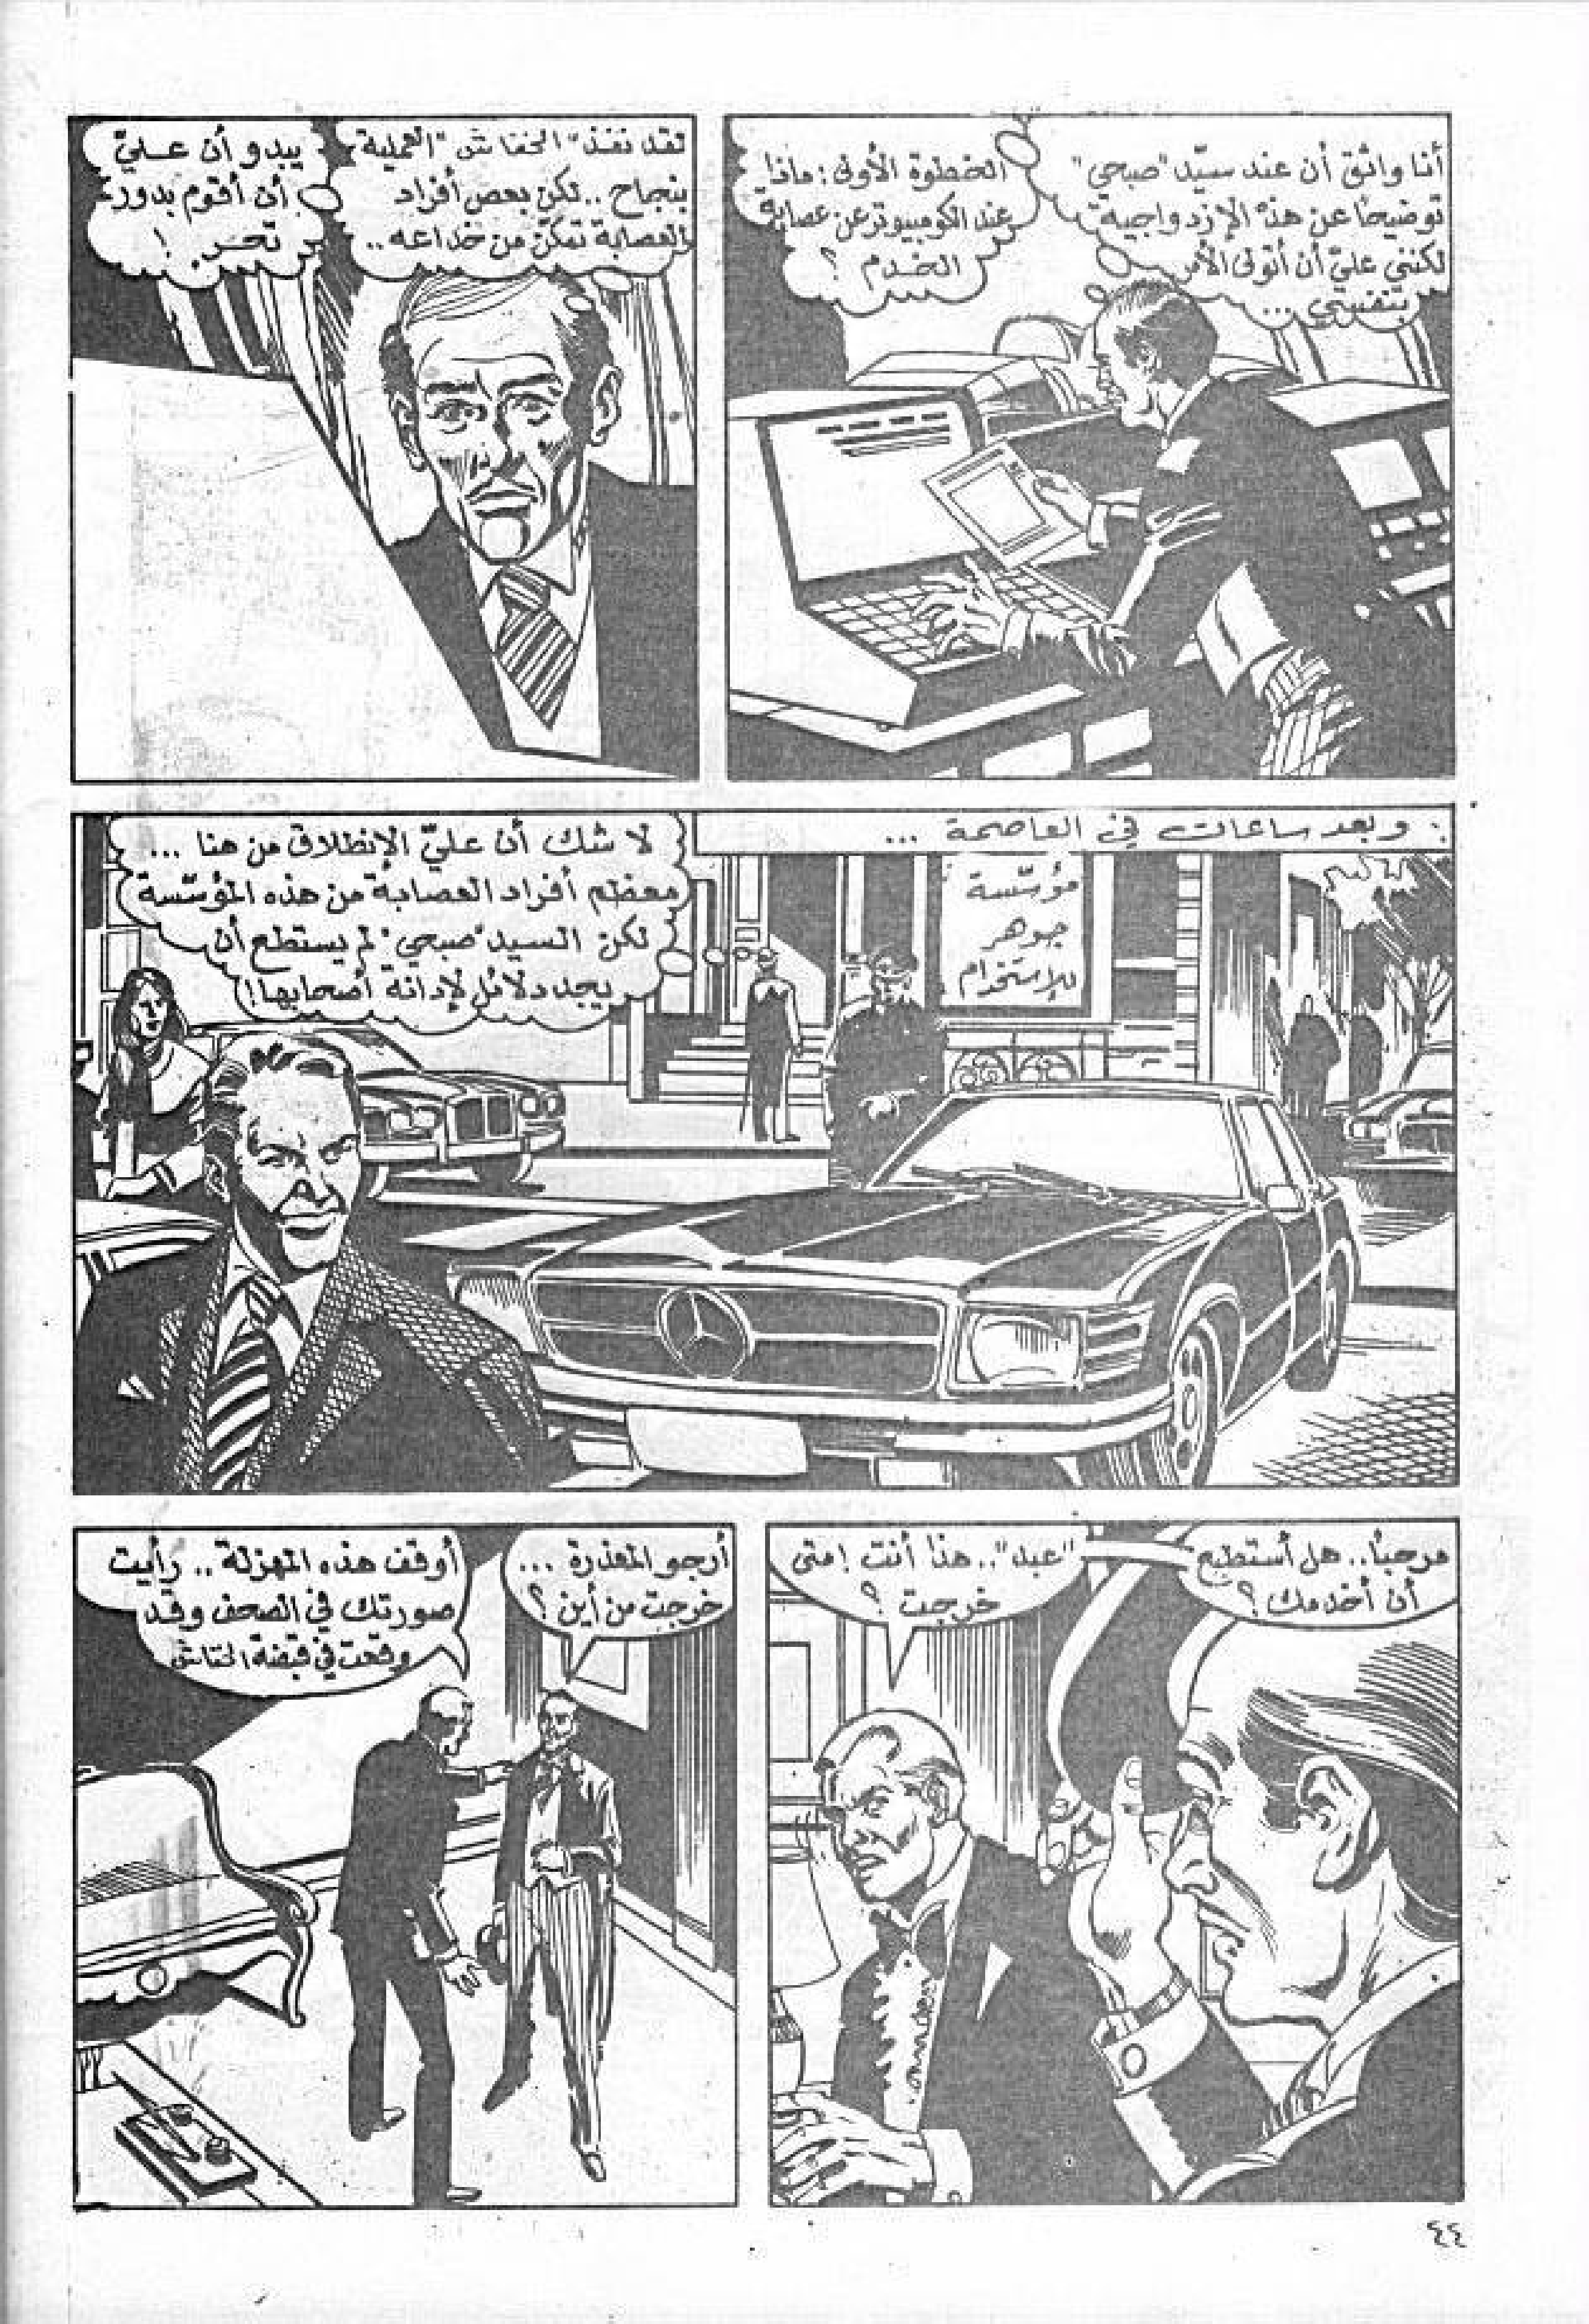 أنا واثق أن عند سيّد "صبحي"
توضيحًا عن هذه الإزدواجية"
لكنني عليّ أن أتولى الأمر
بنفسي ...
الخطوة الأولى: ماذا
عند الكومبيوتر عن عصابة
الخدم ؟
لقد نفّذ "الخفاش" العملية
بنجاح .. لكن بعض أفراد
العصابة تمكّن من خداعه ..
يبدو أن عليّ
أن أقوم بدور
تحرٍ !
وبعد ساعات في العاصمة ...
لا شك أن عليّ الإنطلاق من هنا ...
معظم أفراد العصابة من هذه المؤسّسة
لكن السيد "صبحي" لم يستطع أن
يجد دلائل لإدانة أصحابها !
مؤسّسة
جوهر
للإستخدام
مرحبًا.. هل أستطيع
أن أخدمك ؟
"عبد".. هذا أنت ! متى
خرجت ؟
أرجو المعذرة ...
خرجت من أين ؟
أوقف هذه المهزلة .. رأيت
صورتك في الصحف وقد
وقعت في قبضة الخفاش
٤٤